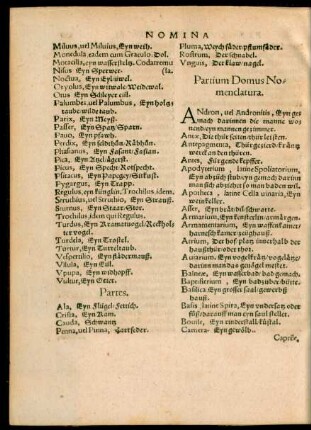 NOMINA
Miluus, uel Miluius, Eyn weth.
Monedula, eadem cum Graculo. Dol.
Motacilla, eyn wasserstelz. Codatremu
Nisus Eyn Sperwer. (la.
Noctua, Eyn Eyluwel.
Oryolus, Eyn witwale. Wedewal.
Otus Eyn Schleyer eill.
Palumbes, uel Palumbus, Eyn holtz
taube. wildetaub.
Parix, Eyn Meyß.
Passer, Eyn Spatz. Sparn.
Pauo, Eyn pfaw.
Perdix, Eyn
Phasianus, Eyn Fasant. Fasian.
Pica, Eyn
Picus, Eyn Specht. Rotspecht.
Psitacus, Eyn Papegey. Sittich.
Pygargus, Eyn Trapp.
Regulus, eyn künglin. Trochilus. idem.
Struthius, uel Strutho, Eyn Strauß.
Sturnus, Eyn Staar. Stor.
Trochilus, idem qui Regulus.
Turdus, Eyn
ter vogel.
Turdela, Eyn Trostel.
Turtur, Eyn Turteltaub.
Vespertilio, Eyn fledermauß.
Vlula, Eyn Eill.
Vpupa, Eyn widhopff.
Vultur, Eyn Geier.
Partes.
Ala, Eyn Flügel. Fettich.
Crista, Eyn Kam.
Cauda, Schwantz
Penna, uel Pinna,
Pluma, Weych feder. pflumfeder.
Rostrum, Der schnabel.
Vnguis, Der klaw. nagel.
Partium Domus No-
menclatura.
ANdron, uel Andronitis, Eyn ge
mach darinnen die manne wo
nen. deyn mannen gezimmer.
Antæ, Die zwo seiten an der thürleisten.
Antepagmenta, Thürgezierd. fräntz
werck an den thüren.
Antes, Fürgende
Apodyterium, latine Spoliatorium,
Eyn abzihestub. eyn gemach darin
man sich abzihet so man baden wil.
Apotheca, latine Cella uinaria, Eyn
weinkeller.
Asser, Eyn bret. diel. schwarte.
Armarium, Eyn
Armamentarium, Eyn waffenkamer.
harnesch kamer. zeughauß.
Atrium, Der hof. platz innerhalb der
haußthür oder thor.
Auiarium, Eyn vogelkraü. vogelge
darin man die vogel mestet.
Balneæ, Eyn gemeyn badstub. gemach.
Baptisterium, Eyn badzuber. bütte.
Basilica Eyn grosser saal. gewerb
hauß.
Basis, latine Spira, Eyn undersatz oder
füß darauff man eyn saul stellet.
Bouile, Eyn rinderstall. küstal.
Camera, Eyn gewölb.
Capreæ,